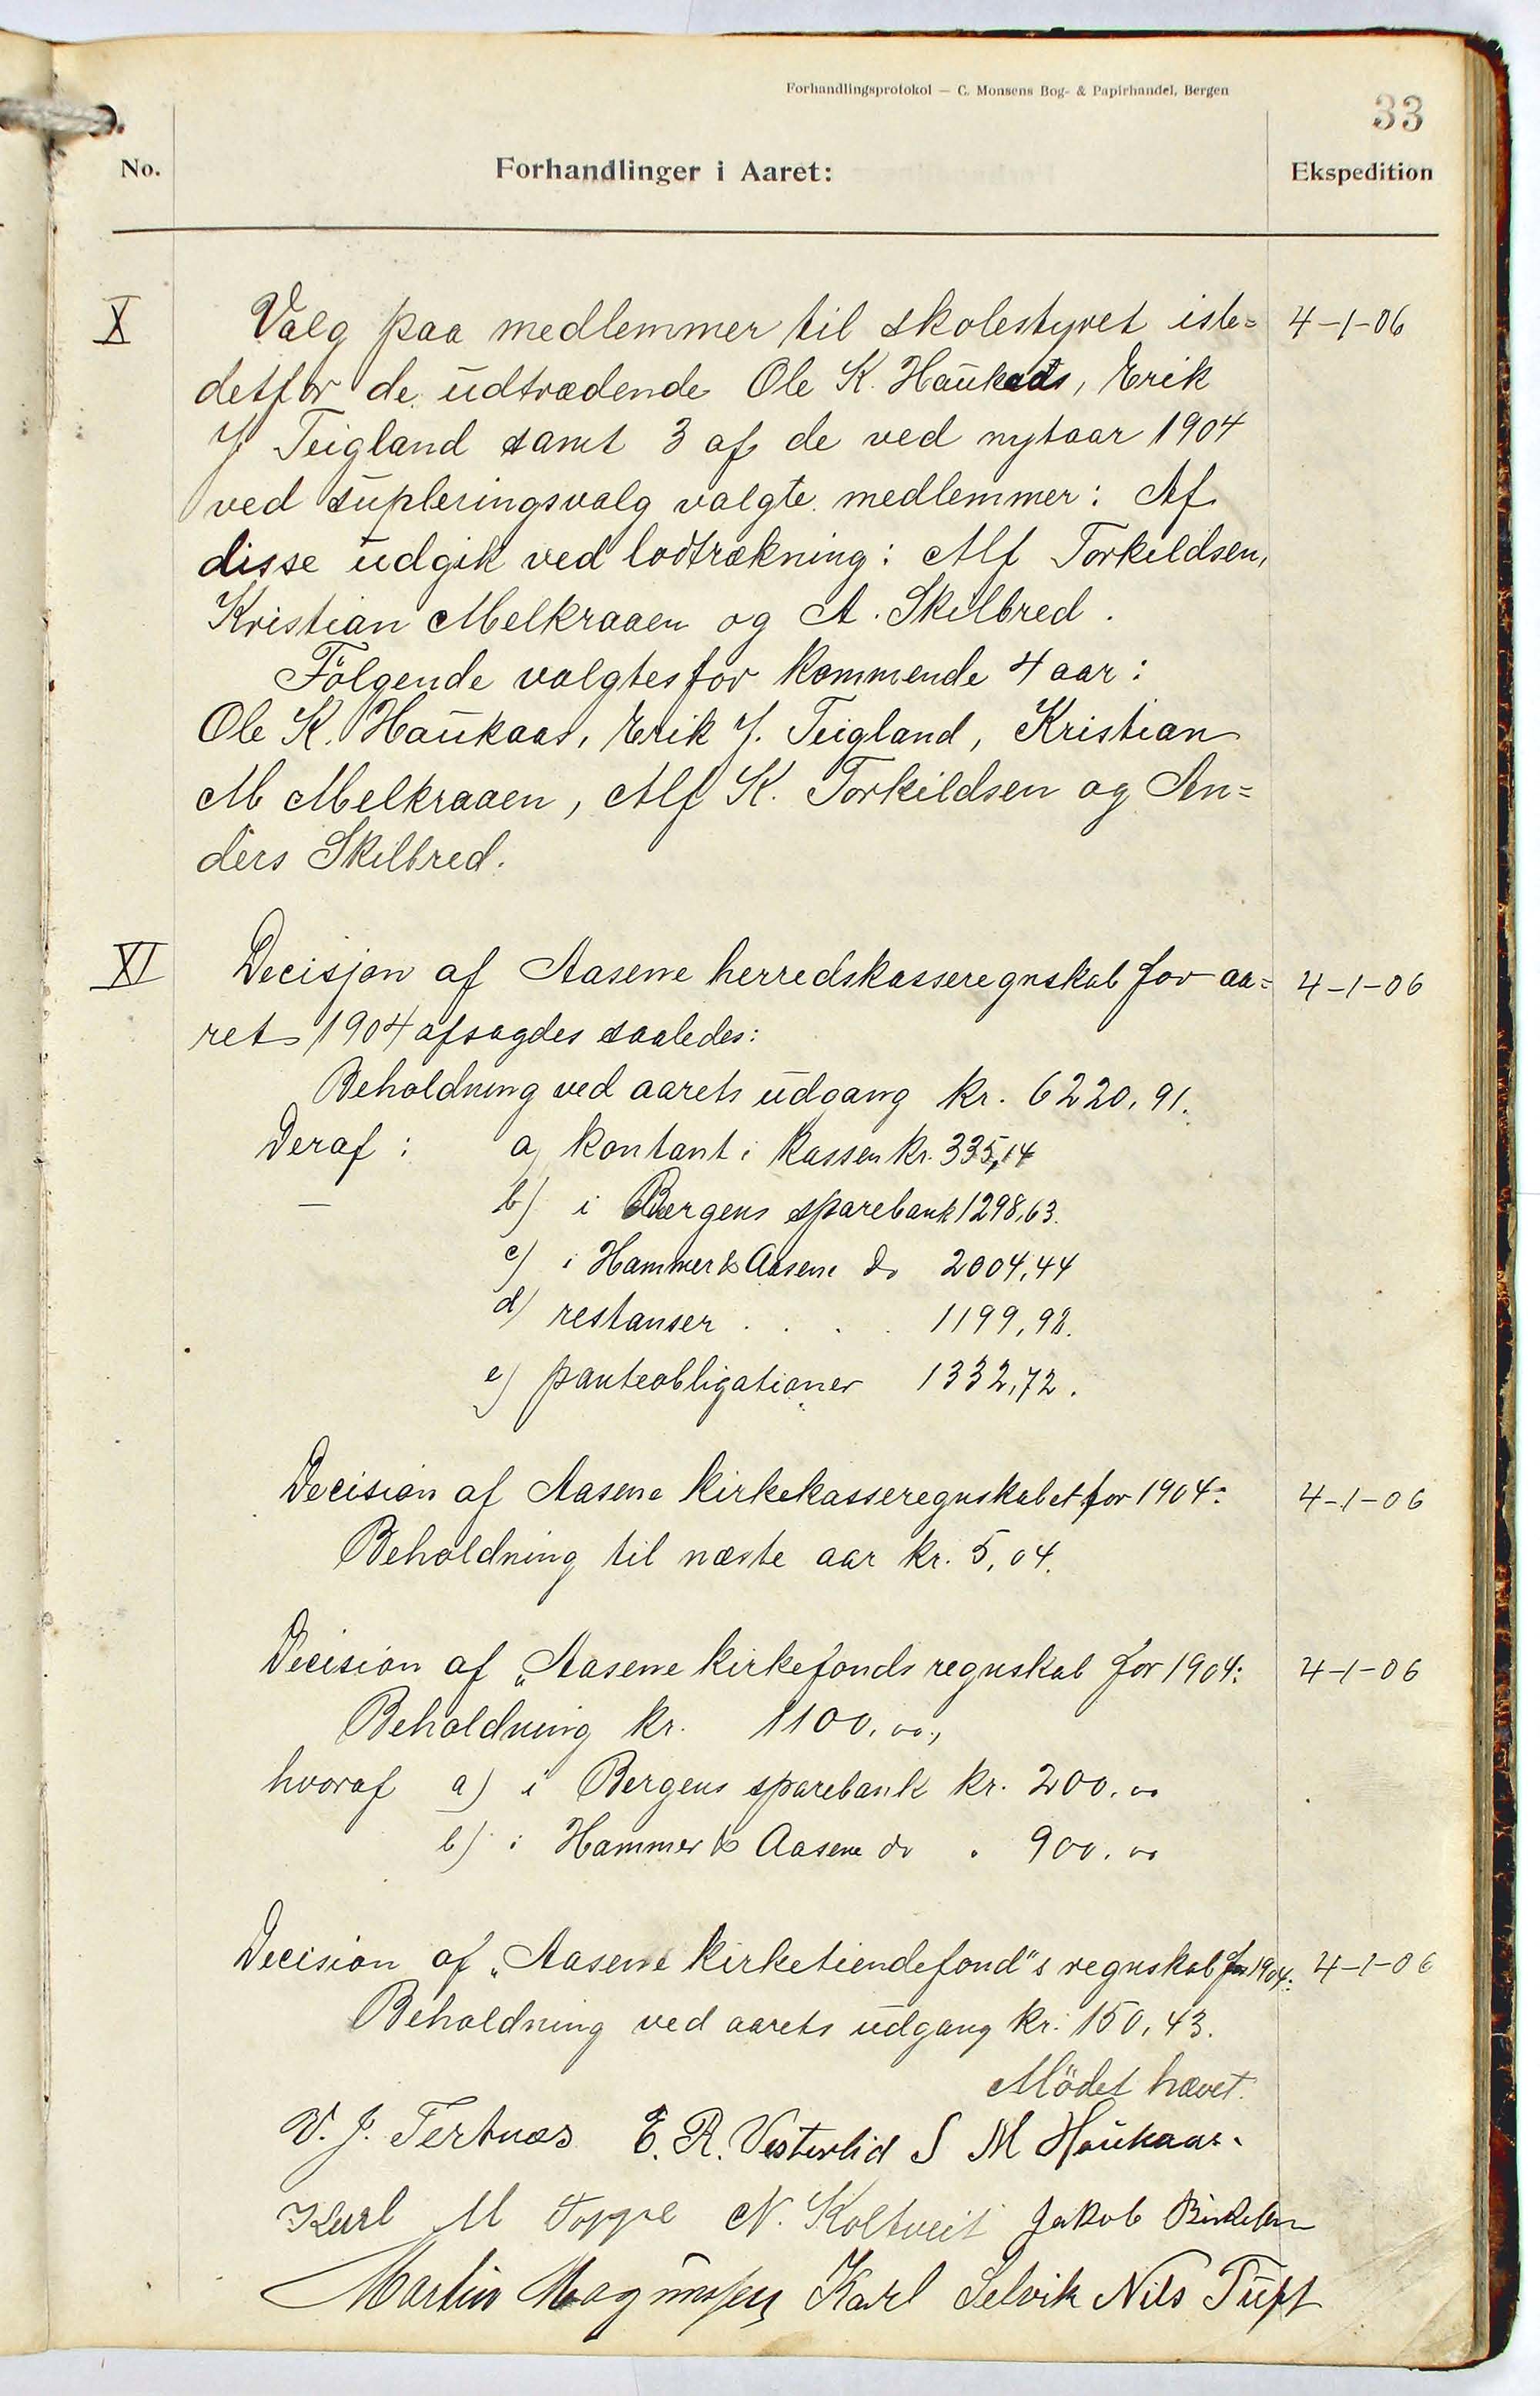 Forhandlingsprotokol — C. Monsens Bog- & Papirhandel, Bergen
33
No. Forhandlinger i Aaret: Ekspedition
X Valg paa medlemmer til skolestyret iste= 4-1-06
detfor de udtrædende Ole K. Haukaas, Erik
J. Teigland samt 3 af de ved nytaar 1904
ved supleringsvalg valgte medlemmer: Af
disse udgik ved lodtrækning: Alf Torkildsen,
Kristian Melkraaen og A. Skilbred.
Følgende valgtes for kommende 4 aar:
Ole K. Haukaas, Erik J. Teigland, Kristian
M Melkraaen, Alf K. Torkildsen og An=
ders Skilbred.
XI Decisjon af Aasene herredskasseregnskab for aa= 4-1-06
ret 1904 afsagdes saaledes:
Beholdning ved aarets udgang kr. 6220,91.
Deraf: a) kontant i kassen kr. 335,14
— b) i Bergens sparebank 1298,63.
c) i Hammer & Aasene do 2004,44
d) restanser . . . . 1199,98.
e) panteobligationer 1332,72.
Decision af Aasene kirkekasseregnskabet for 1904: 4-1-06
Beholdning til næste aar kr. 5,04.
Decision af „Aasene kirkefonds regnskab for 1904: 4-1-06
Beholdning kr. 1100,00,
hvoraf a) i Bergens sparebank kr. 200,00
b) i Hammer & Aasene do " 900,00
Decision af „Aasene kirketiendefond"s regnskab for 1904: 4-1-06
Beholdning ved aarets udgang kr. 150,43.
Mödet hævet.
V. J. Tertnæs E. R. Vesterlid S M Haukaas.
Karl M Toppe N. Koltveit Jakob
Martin Magnussen Karl Selvik Nils Tuft